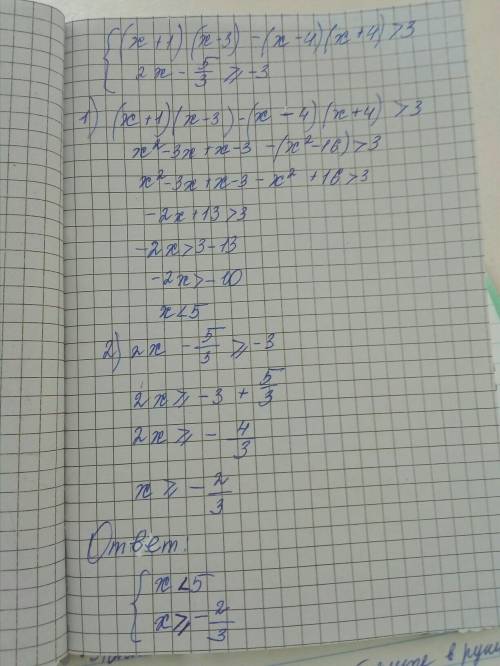 { (x+1)(x-3)-(x-4)(x+4)>3
2x - 5/3 ⩾ -3
1) (x+1)(x-3)-(x-4)(x+4)>3
x²-3x+x-3-(x²-16)>3
x²-3x+x-3-x²+16>3
-2x+13>3
-2x>3-13
-2x>-10
x<5
2) 2x - 5/3 ⩾ -3
2x ⩾ -3 + 5/3
2x ⩾ - 4/3
x ⩾ - 2/3
Ответ:
{ x<5
x ⩾ - 2/3